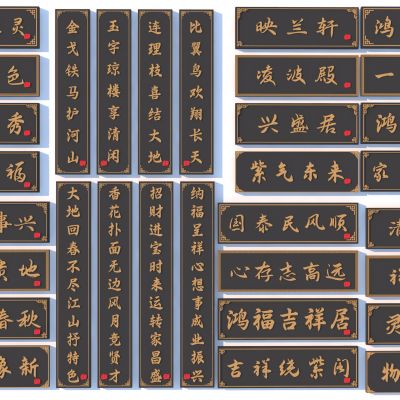 灵
色
秀
福
事兴
地
春秋
新
金戈铁马护河山
玉宇琼楼享清闲
连理枝喜结大地
比翼鸟欢翔长天
大地回春不尽江山抒特色
香花扑面无边风月竞贤才
招财进宝时来运转家昌盛
纳福呈祥心想事成业振兴
映兰轩
凌波殿
兴盛居
紫气东来
国泰民风顺
心存志高远
鸿福吉祥居
吉祥绕紫阁
鸿
一
鸿
家
灵
物